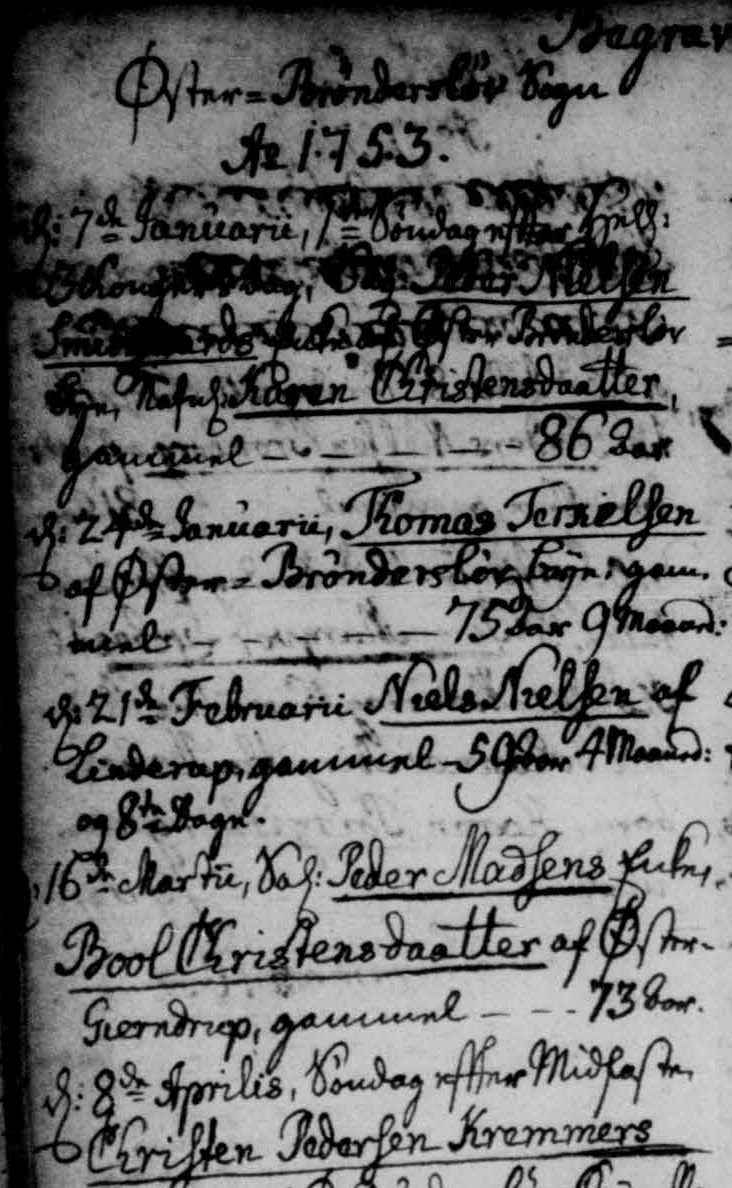 Begrav
Øster=Brönderslöv Sogn
Ao 1753.
d: 7de Januarii, 1te Söndag effter Hell:
3 Kongers dag, Sal: Peder Nielsen
Enke af Öster Brönderslöv
Bye, Nafnl: Karen Christensdaatter,
gammel - - - - - 86 Aar
d: 24de Januarii, Thomas Terkielsen
af Øster=Brönderslöv bye, gam-
mel - - - - - 75 Aar 9 Maaned:
d: 21de Februarii Niels Nielsen af
Linderup, gammel - 59 Aar 4 Maaned:
og 8te Dage.
16de Martii, Sal: Peder Madsens Enke,
Bool Christensdaatter af Øster-
Gierndrup, gammel - - - 73 Aar.
d: 8de Aprilis, Söndag effter Midfaste,
Christen Pedersen Kremmers